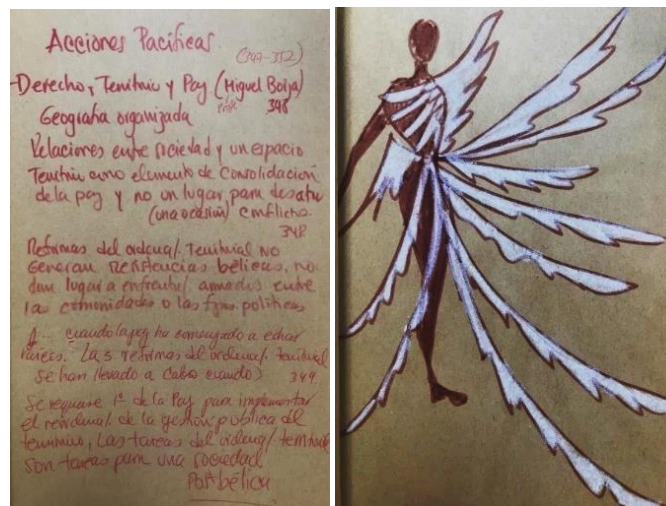 Acciones Pacíficas
(349-352)
Derecho, Territorio y Paz (Miguel Borja)
348
Geografía organizada
Relaciones entre sociedad y un espacio
Territorio como elemento de consolidación
de la paz y no un lugar para desatar
(una ocasión) conflictos
348
Reformas del ordena/. Territorial NO
Generan Resistencias bélicas, no
dan lugar a enfrenta/. armados entre
las comunidades o las fzas políticas
cuando la paz ha comenzado a echar
raíces. Las reformas del ordena/. territorial
se han llevado a cabo cuando) 349
Se requiere 1º de la Paz para implementar
el reordena/. de la gestión pública del
territorio, Las tareas del ordena/ territorial
son tareas para una sociedad
Posbélica